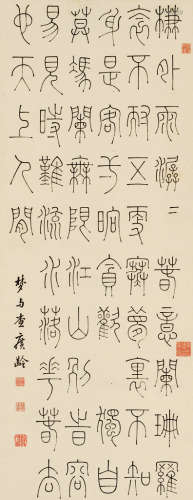 簾外雨潺〻春意闌珊羅
衾不耐五更寒夢裏不知
身是客弌晌貪歡獨自
莫馮闌無限江山別旹容
易見時難流水落花春去
也天上人間
查